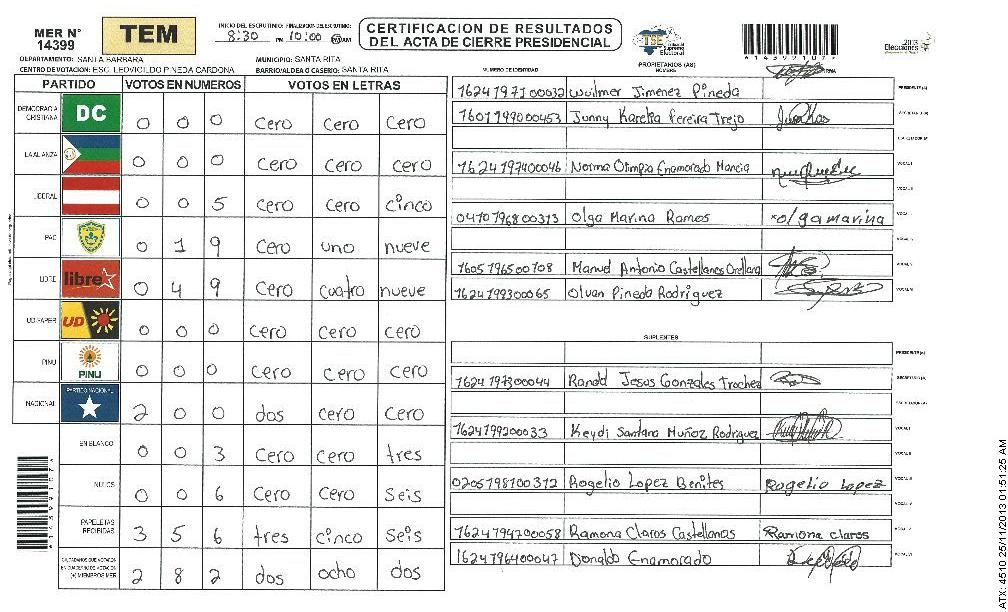 MER N° 14399
TEM
INICIO DEL ESCRUTINIO: 8:30 PM FINALIZACION DEL ESCRUTINIO: 10:00
CERTIFICACION DE RESULTADOS
DEL ACTA DE CIERRE PRESIDENCIAL
TSE Tribunal Supremo Electoral
2013 Elecciones
A1439910?A
DEPARTAMENTO: SANTA BARBARA
MUNICIPIO: SANTA RITA
CENTRO DE VOTACION: ESC. LEOVICILDO PINEDA CARDONA
BARRIO/ALDEA O CASERIO: SANTA RITA
PARTIDO VOTOS EN NUMEROS VOTOS EN LETRAS
DEMOCRACIA CRISTIANA DC 0 0 0 Cero Cero Cero
LA ALIANZA 0 0 0 Cero Cero Cero
LIBERAL 0 0 5 Cero Cero Cinco
PAC 0 1 9 Cero uno nueve
LIBRE libre 0 4 9 Cero cuatro nueve
UD-FAPER UD 0 0 0 Cero Cero Cero
PINU PINU 0 0 0 Cero Cero Cero
NACIONAL PARTIDO NACIONAL 2 0 0 dos Cero Cero
EN BLANCO 0 0 3 Cero Cero tres
NULOS 0 0 6 Cero Cero Seis
PAPELETAS RECIBIDAS 3 5 6 tres cinco Seis
CIUDADANOS QUE VOTARON EN CUADERNO DE VOTACION (+) MIEMBROS MER 2 8 2 dos ocho dos
PROPIETARIOS (AS)
NUMERO DE IDENTIDAD NOMBRE FIRMA
1624197100032 Wuilmer Jimenez Pineda PRESIDENTE (A)
1601199000453 Junny Karelia Pereira Trejo SECRETARIO (A)
ESCRUTADOR (A)
1624197400046 Norma Olimpia Enamorado Mancia VOCAL I
VOCAL II
0410196800313 Olga Marina Ramos olga marina
1605196500108 Manuel Antonio Castellanos Orellana
1624199300065 Olvan Pineda Rodriguez
SUPLENTES
PRESIDENTE (A)
1624197300044 Ranold Jesus Gonzales Trochez SECRETARIO (A)
ESCRUTADOR (A)
1624199200033 Keydi Santana Muñoz Rodriguez VOCAL I
VOCAL II
0205198100312 Rogelio Lopez Benites Rogelio Lopez
1624194700058 Ramona Claros Castellanos Ramona Claros
1624196400047 Donaldo Enamorado
ATX: 4510 25/11/2013 01:51:25 AM